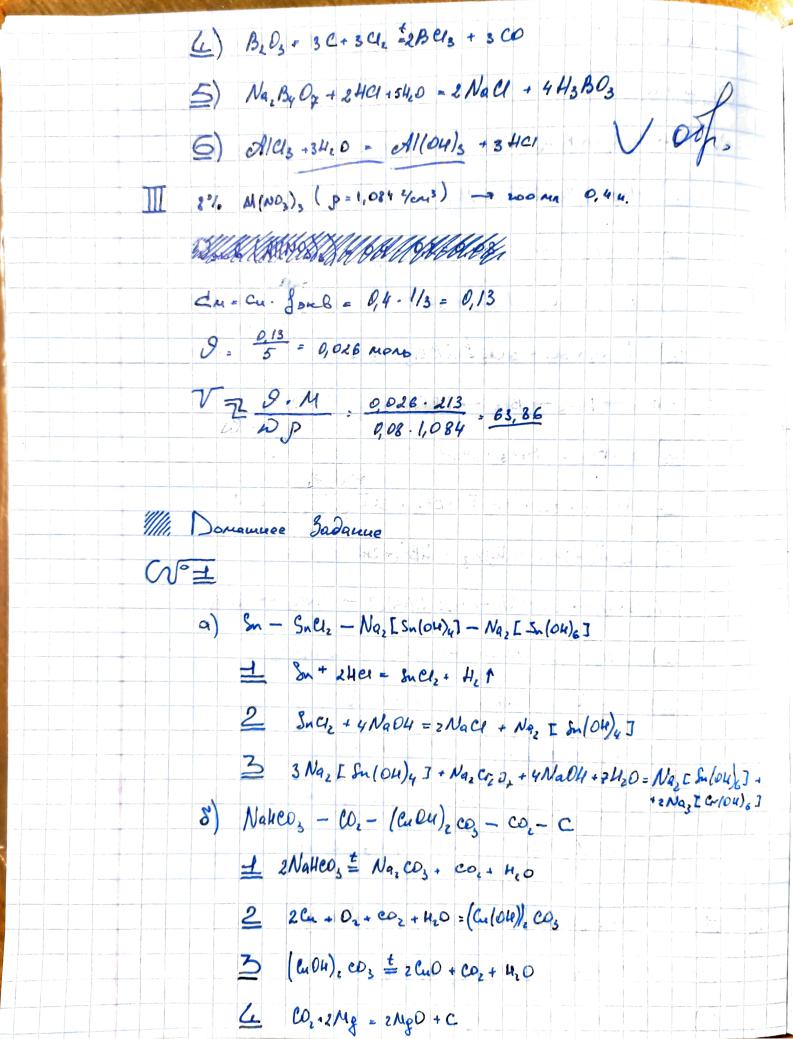 4) B₂O₃ + 3C + 3Cl₂ =ᵗ 2BCl₃ + 3CO
5) Na₂B₄O₇ + 2HCl + 5H₂O = 2NaCl + 4H₃BO₃
6) AlCl₃ + 3H₂O = Al(OH)₃ + 3HCl
V обр.
III 8% Al(NO₃)₃ (ρ = 1,084 г/см³) → 200 мл 0,4 н.
См = Сн · fэкв = 0,4 · 1/3 = 0,13
ϑ = 0,13/5 = 0,026 моль
V = ϑ · М / ω ρ = 0,026 · 213 / 0,08 · 1,084 = 63,86
Домашнее Задание
№ 1
а) Sn – SnCl₂ – Na₂[Sn(OH)₄] – Na₂[Sn(OH)₆]
1 Sn + 2HCl = SnCl₂ + H₂↑
2 SnCl₂ + 4NaOH = 2NaCl + Na₂[Sn(OH)₄]
3 3Na₂[Sn(OH)₄] + Na₂Cr₂O₇ + 4NaOH + 7H₂O = Na₂[Sn(OH)₆] +
+ 2Na₃[Cr(OH)₆]
б) NaHCO₃ – CO₂ – (CuOH)₂CO₃ – CO₂ – C
1 2NaHCO₃ =ᵗ Na₂CO₃ + CO₂ + H₂O
2 2Cu + O₂ + CO₂ + H₂O = (Cu(OH))₂CO₃
3 (CuOH)₂CO₃ =ᵗ 2CuO + CO₂ + H₂O
4 CO₂ + 2Mg = 2MgO + C